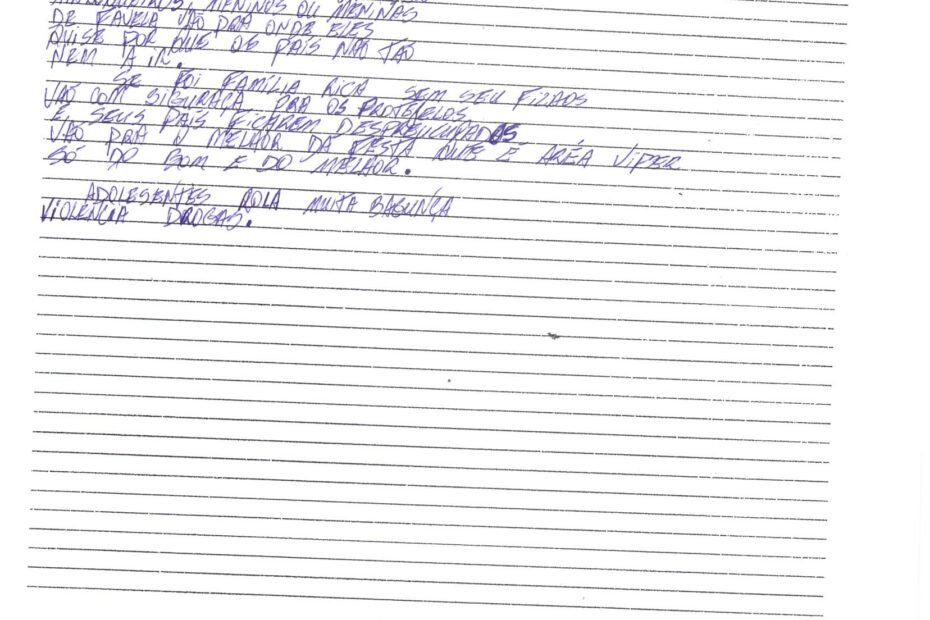 MENINOS OU MENINAS
DE FAVELA VÃO PRA ONDE ELES
QUISE POR QUE OS PAÍS NÃO TÃO
NEM IA IR.
SE FOI FAMÍLIA RICA SEM SEU FILHOS
VÃO COM SIGURAÇA PRA OS PROTEJELOS
E SEUS PAÍS FICAREM DESPREUCUPADOS
VÃO PRA O MELHOR DA FESTA QUE É ARÉA VIPER
SÓ DO BOM E DO MELHOR.
ADOLESENTES ROLA MUITA BAGUNÇA
VIOLENCIA DROGAS.